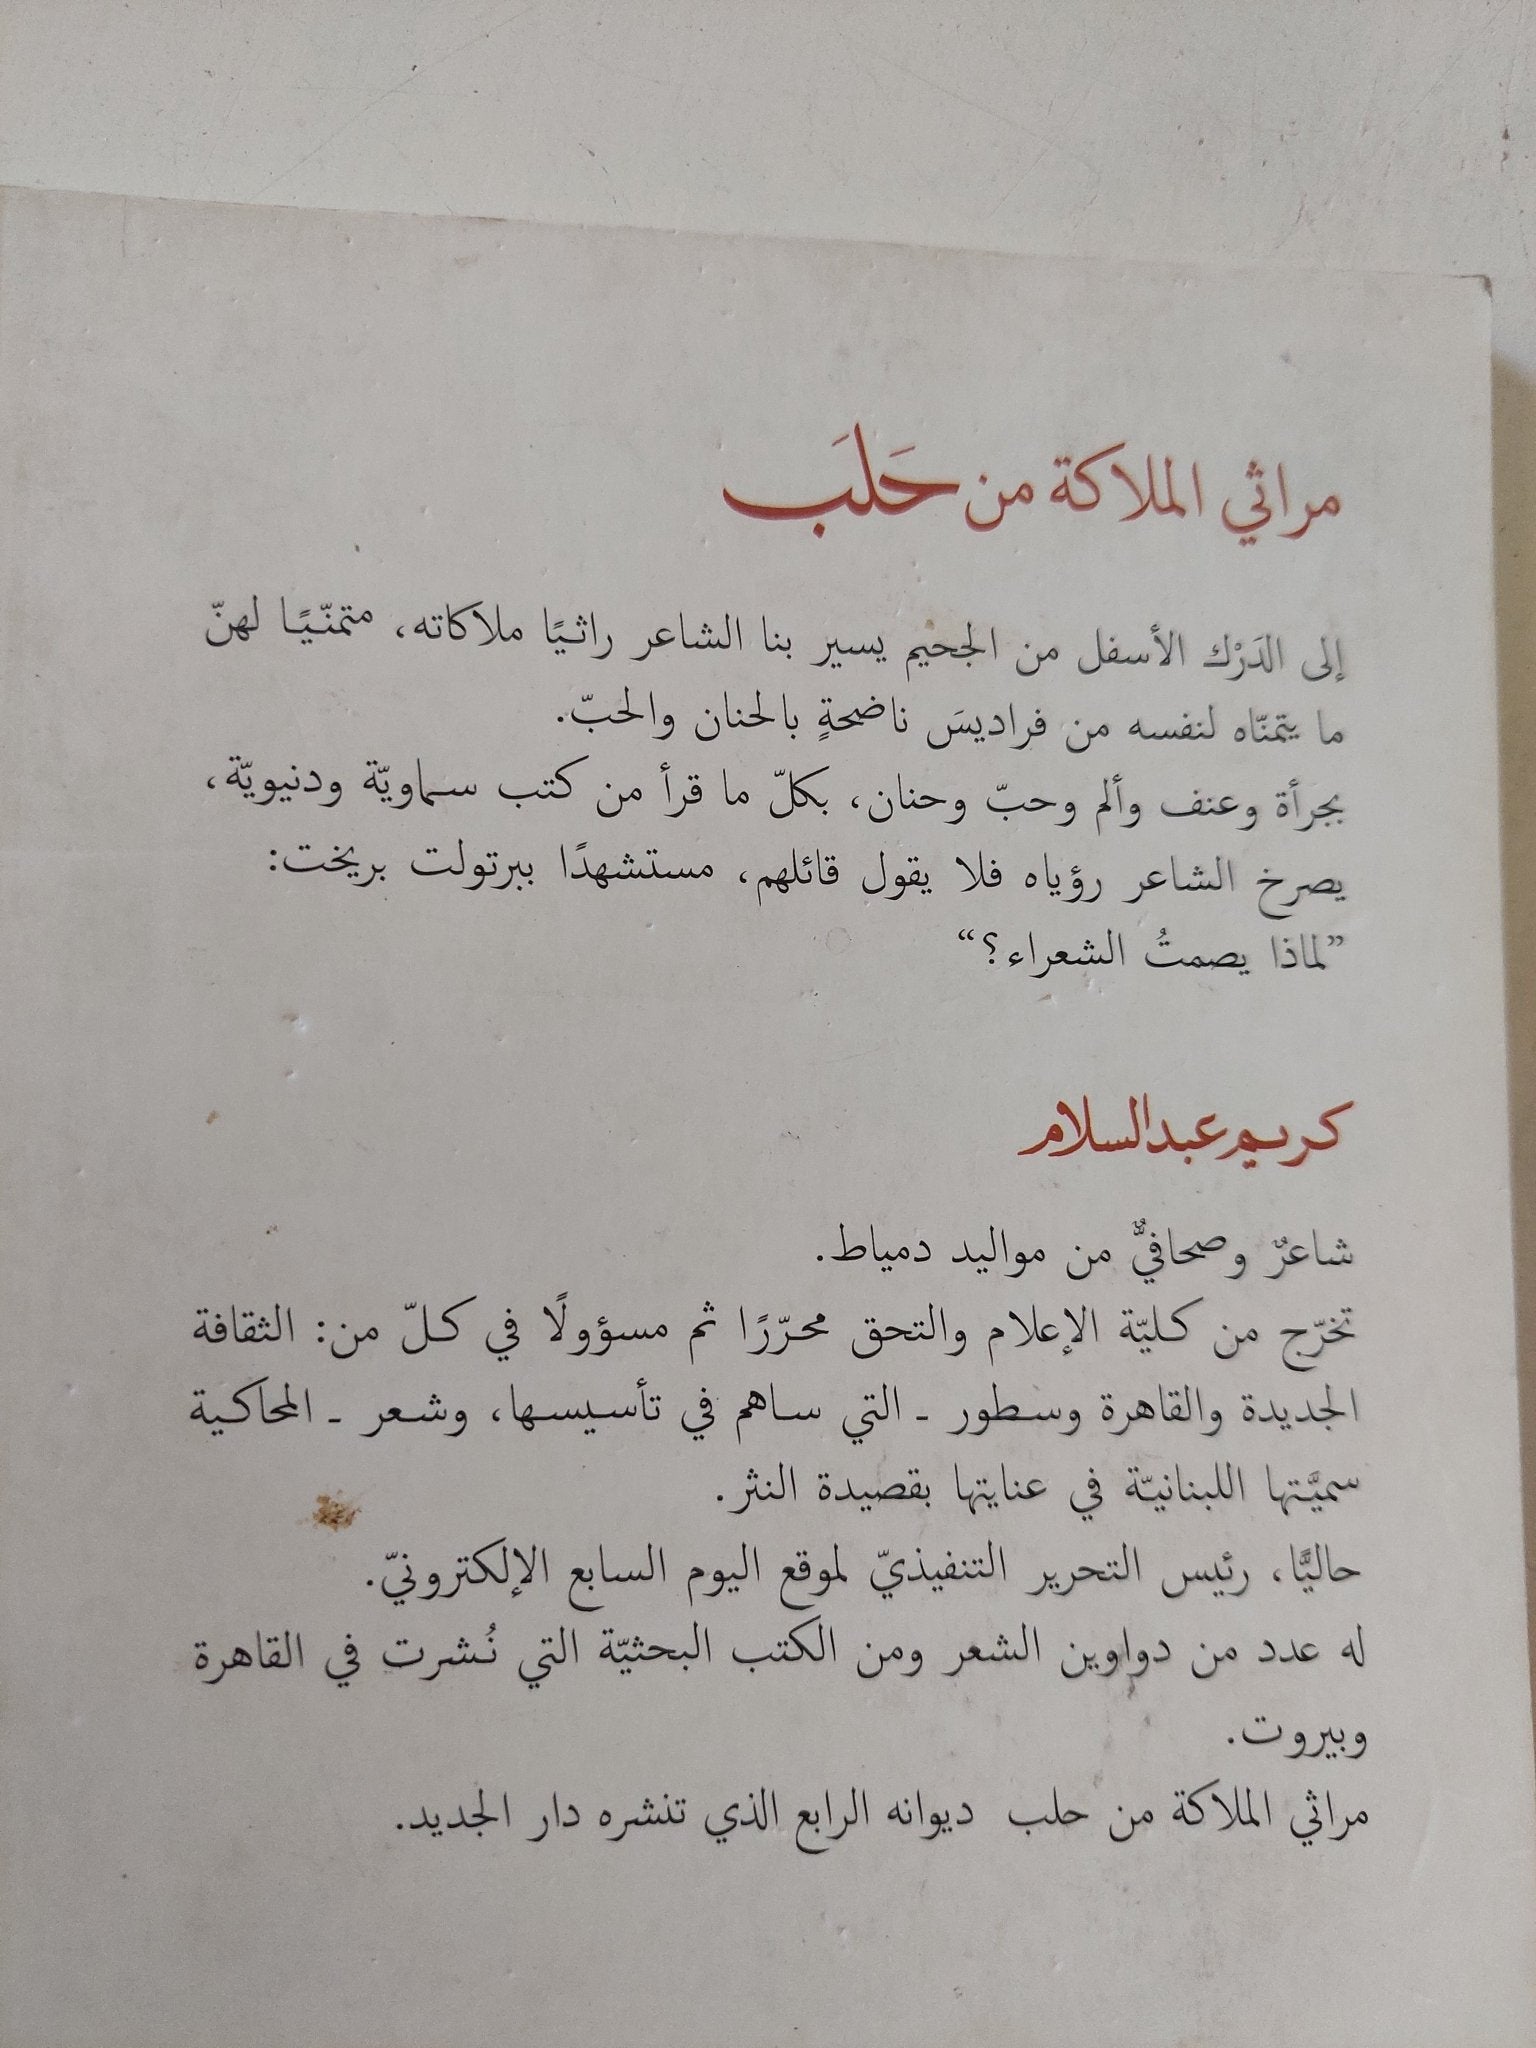 مراثي الملاكة من حَلَب
إلى الدَرْك الأسفل من الجحيم يسير بنا الشاعر راثيًا ملاكاته، متمنّيًا لهنّ
ما يتمنّاه لنفسه من فراديسَ ناضحةٍ بالحنان والحبّ.
بجرأة وعنف وألم وحبّ وحنان، بكلّ ما قرأ من كتب سماويّة ودنيويّة،
يصرخ الشاعر رؤياه فلا يقول قائلهم، مستشهدًا ببرتولت بريخت:
”لماذا يصمتُ الشعراء؟“
كريم عبدالسلام
شاعرٌ وصحافيٌّ من مواليد دمياط.
تخرّج من كليّة الإعلام والتحق محرّرًا ثم مسؤولًا في كلّ من: الثقافة
الجديدة والقاهرة وسطور ـ التي ساهم في تأسيسها، وشعر ـ المحاكية
سميَّتها اللبنانيّة في عنايتها بقصيدة النثر.
حاليًّا، رئيس التحرير التنفيذيّ لموقع اليوم السابع الإلكترونيّ.
له عدد من دواوين الشعر ومن الكتب البحثيّة التي نُشرت في القاهرة
وبيروت.
مراثي الملاكة من حلب ديوانه الرابع الذي تنشره دار الجديد.